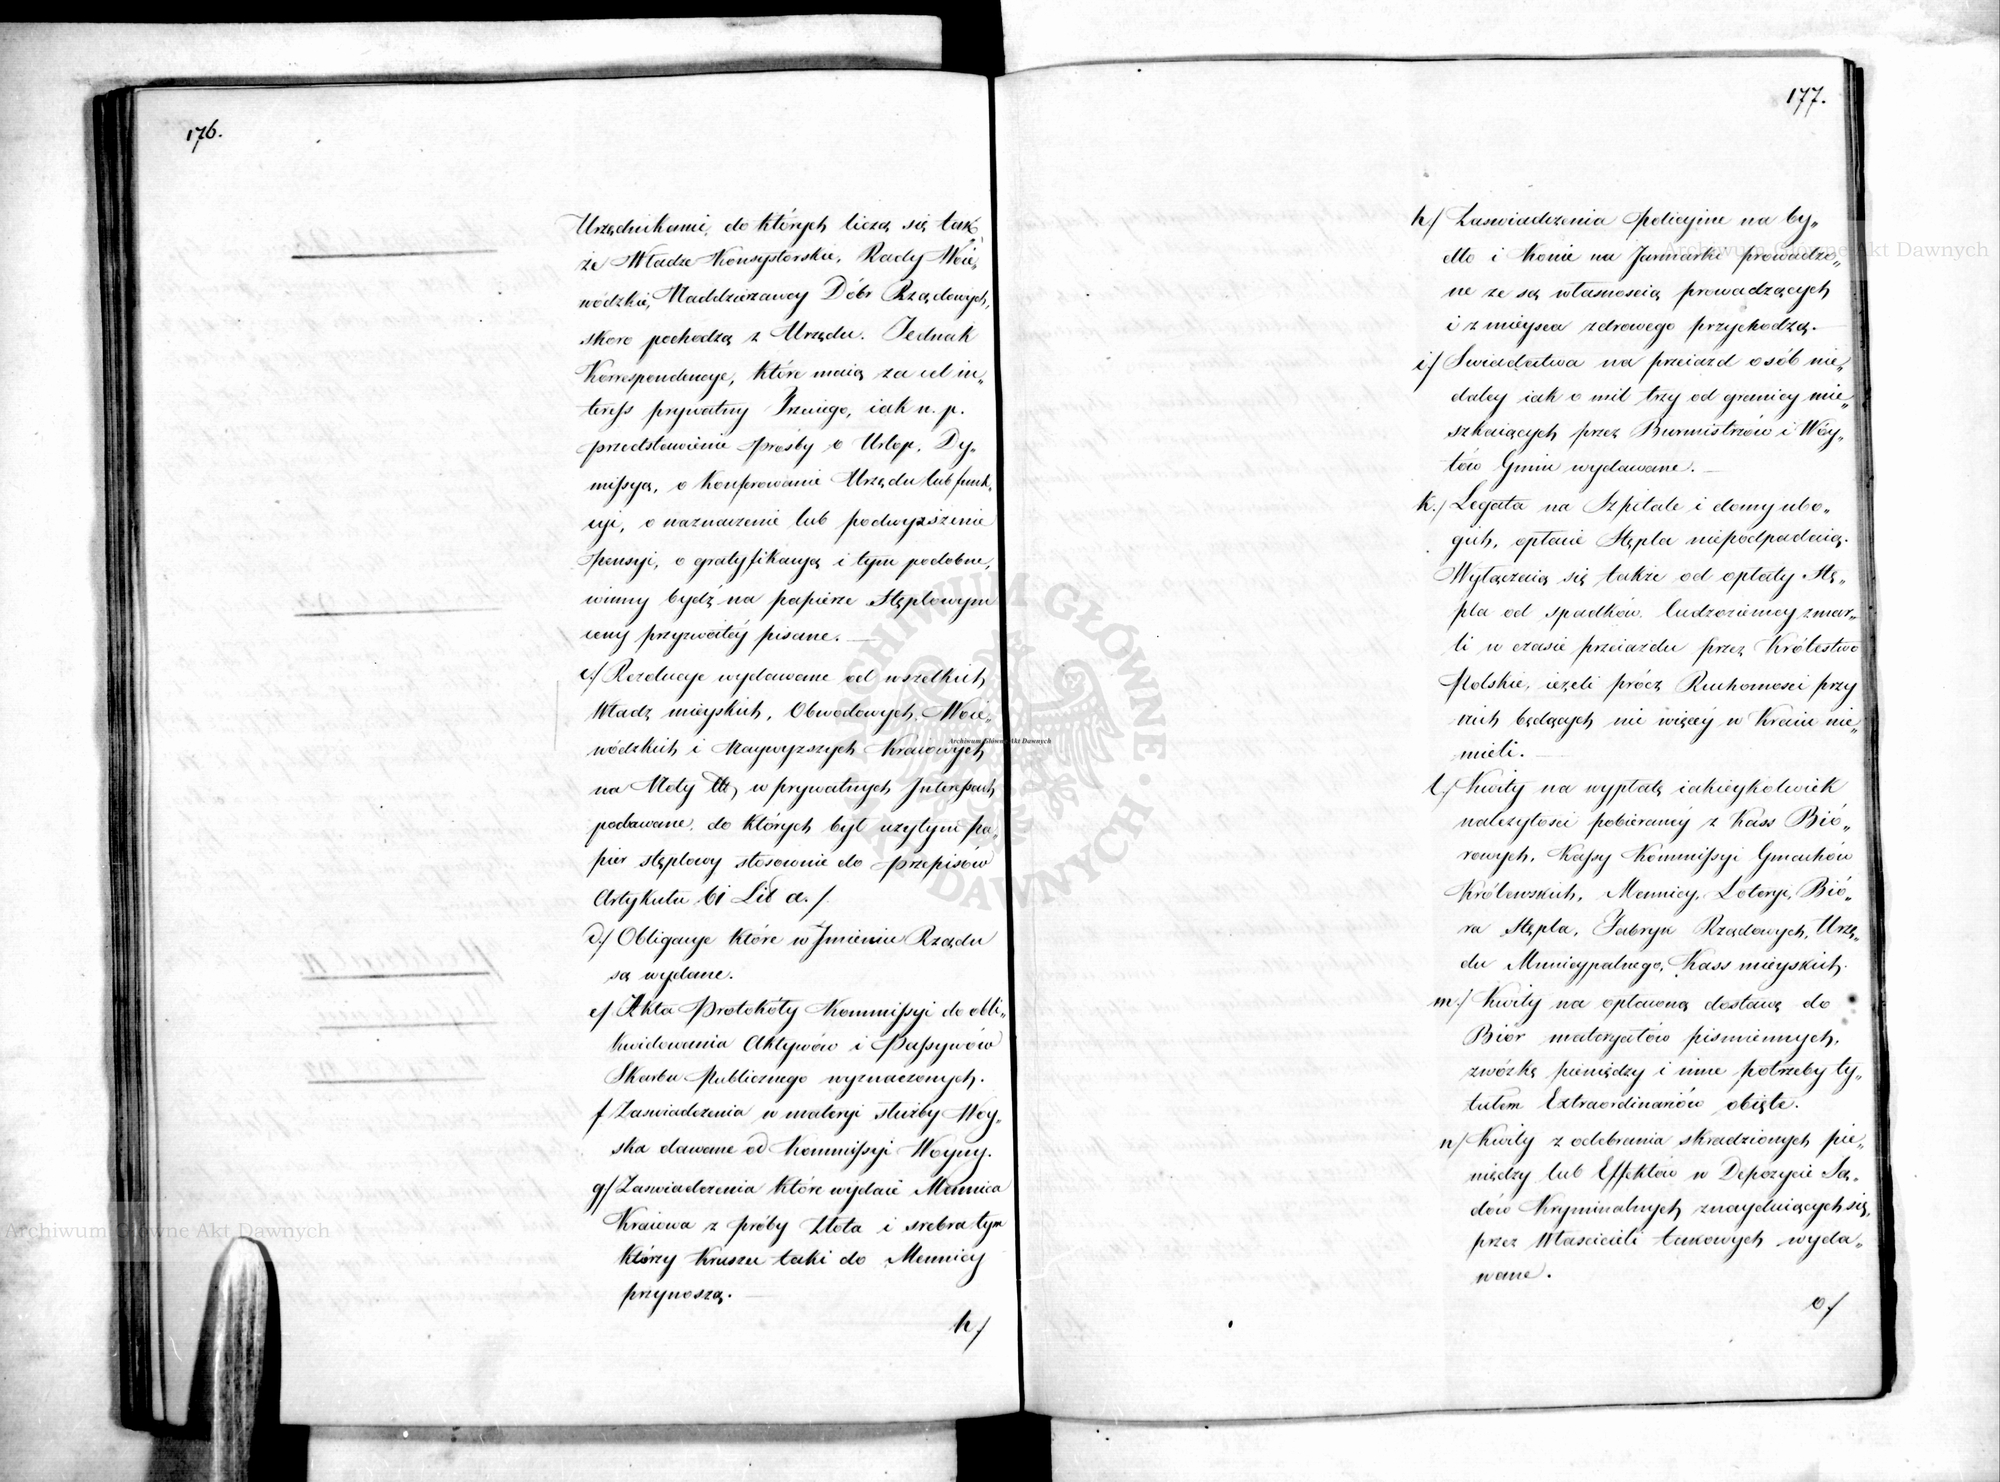 176.
Urzędnikami, do których liczą się tak
że Władze Konsystorskie, Rady Woie„
wódzkie, Naddzierzawcy Dóbr Rządowych,
skoro pochodzą z Urzędu. Jednak
Korrespondencye, które maią za cel in„
teress prywatny Trzeciego, iak n. p.
przedstawienie prośby o Urlop, Dy„
missyą, o konferowanie Urzędu lub funk„
cyi, o naznaczenie lub podwyższenie
Pensyi, o gratyfikacyą i tym podobne,
winny bydź na papierze Stęplowym
ceny przyzwoitéy pisane. —
c/ Rezolucye wydawane od wszelkich
Władz mieyskich, Obwodowych, Woie„
wódzkich i Naywyzszych Kraiowych
na Noty etc, w prywatnych Interessach
podawane, do których był uzytym pa„
pier stęplowy stosownie do Przepisów
Artykułu 61 Lit a. /.
d/ Obligacye które w Jmieniu Rządu
są wydane.
e/ Akta Protokóły Kommissyi do obli„
kwidowania Aktywów i Passywów
Skarbu Publicznego wyznaczonych.
f Zaswiadczenia w materyi służby Woy„
ska dawane od Kommissyi Woyny.
g/ Zaswiadczenia które wydaie Mennica
Kraiowa z próby Złota i srebra tym
którzy Kruszcu taki do Mennicy
przynoszą. —
h/
177.
h/ Zaswiadczenia Policyine na by„
dło i Konie na Jarmarki prowadzo„
ne ze są własnością prowadzących
i z mieysca zdrowego przychodzą. —
i/ Swiadectwa na przeiazd osób nie„
daley iak o mil trzy od granicy mie„
szkaiących przez Burmistrzów i Wóy„
tów Gmin wydawane. —
k./ Legata na Szpitale i domy ubo„
gich, opłacie Stępla niepodpadaią.
Wyłączaią się także od opłaty Stę„
pla od spadków Cudzoziemcy zmar„
li w czasie przeiazdu przez Królestwo
Polskie, ieżeli prócz Ruchomosci przy
nich będących nie więcéy w Kraiu nie„
mieli. —
l./ Kwity na wypłatę iakieykolwiek
nalezytości pobieranéy z Kass Bió„
rowych, Kassy Kommissyi Gmachów
Królewskich, Mennicy, Loteryi, Bió„
ra Stępla, Fabryk Rządowych, Urzę„
du Municypalnego, Kass mieyskich.
m./ Kwity na opłaconą dostawę do
Biór materyałów pismiennych,
zwózkę pieniędzy i inne potrzeby ty„
tułem Extraordinariów obięte.
n/ Kwity z odebrania skradzionych pie„
niędzy lub Effektów w Depozycie Są„
dów Kryminalnych znayduiących się,
przez Właścicieli takowych wyda„
wane.
o/
Archiwum Główne Akt Dawnych
Archiwum Główne Akt Dawnych
Archiwum Główne Akt Dawnych
ARCHIWUM GŁÓWNE AKT DAWNYCH